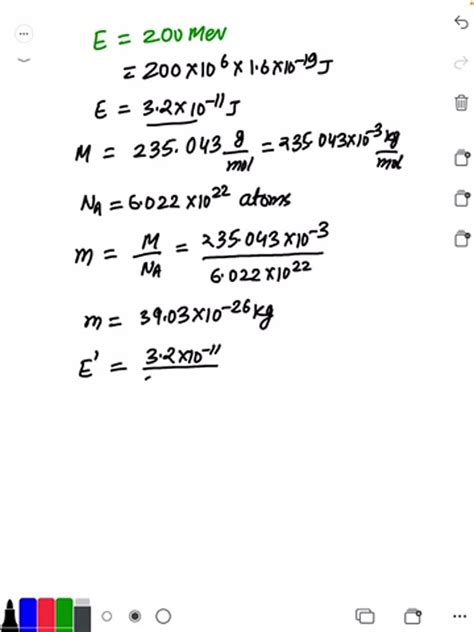 E = 200 Mev
= 200 × 10⁶ × 1.6 × 10⁻¹⁹ J
E = 3.2 × 10⁻¹¹ J
M = 235.043 g/mol = 235.043 × 10⁻³ kg/mol
N_A = 6.022 × 10²² atoms
m = M/N_A = 235.043 × 10⁻³ / 6.022 × 10²²
m = 39.03 × 10⁻²⁶ kg
E' = 3.2 × 10⁻¹¹ /